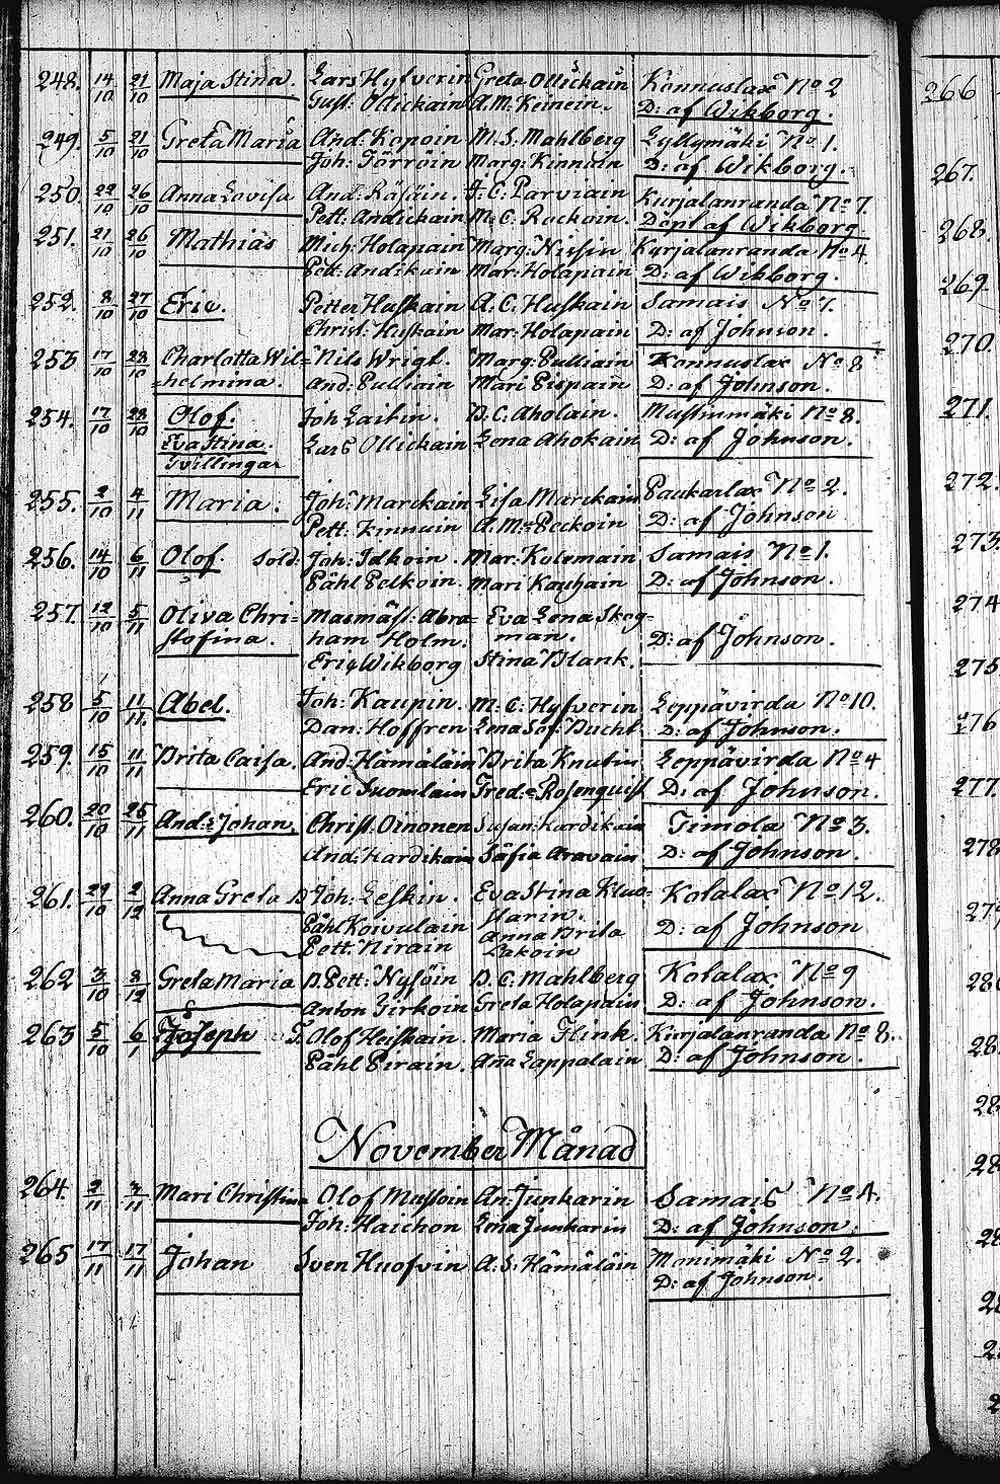 248. 14/10 21/10 Maja Stina. Lars Hyfverin Greta Ollickain Konnuslax No 2
Gust: Ollickain A.M: Keinein. D: af Wikborg.
249. 5/10 21/10 Greta Maria And: Kopoin M.S: Mahlberg Lyllymäki No 1.
Joh: Törröin Marg: Kinnuin D: af Wikborg.
250. 22/10 26/10 Anna Lovisa And: Räisäin. J: C: Parviain Kurjalanranda No 7.
Pett: Andickain M: C: Rackoin. Döpt af Wikborg
251. 21/10 26/10 Mathias Mich: Holapain Marg: Nissin Kurjalanranda No 4.
Pett: Andikain Mar: Holapain D: af Wikborg.
252. 8/10 27/10 Eric. Petter Huskain A.C: Huskain Samais No 7.
Christ: Huskain Mar: Holapain D: af Johnson.
253 17/10 28/10 Charlotta Wil= Nils Wrigt. Marg: Pulliain Konnuslax No 8
=helmina. And: Pulliain Mari Pispain D: af Johnson.
254. 17/10 28/10 Olof. Joh Laitin. B.C: Aholain. Mustinmäki No 8.
Eva Stina. Lars Ollickain Lena Ahokain D: af Johnson.
Tvillingar
255. 2/10 4/11 Maria. Joh: Marckain Lisa Marckain Paukarlax No 2.
Pett: Kinnuin A. M: Peckoin. D: af Johnson
256. 14/10 6/11 Olof Sold: Joh: Idkoin. Mar: Kolemain Samais No 1.
Påhl Pelkoin. Mari Kauhain D: af Johnson.
257. 12/10 5/11 Oliva Chri= Masmäst: Abra= Eva Lena Skog=
stofina. ham Holm. man. D: af Johnson.
Eric Wikborg Stina Blank.
258 5/10 11/11 Abel. Joh: Kaupin. M: C: Hyfverin Leppävirda No 10.
Dan: Hoffren Lena Sof: Bucht D: af Johnson.
259. 15/10 11/11 Brita Caisa. And: Hämäläin Brita Knutin Leppävirda No 4
Eric Suomlain Fred: Rosenquist D: af Johnson.
260. 20/10 25/11 And: Johan. Christ: Oinonen Susan: Hardikain Timola No 3.
And: Hardikain Säfia Aravain D: af Johnson.
261. 29/10 2/12 Anna Greta D Joh: Leskin. Eva Stina Kluo= Kolalax No 12.
starin.
Påhl Koivulain Anna Brita D: af Johnson
Pett: Nirain Lakoin
262 3/10 8/12 Greta Maria B Pett: Nysöin B.C: Mahlberg Kolalax No 9
Anton Tirkoin Greta Holapain D: af Johnson.
263 5/10 6/1 Joseph T. Olof Heiskain Maria Flink. Kurjalanranda No 8.
Påhl Pirain. Aña Lappalain D: af Johnson.
November Månad
264. 2/11 3/11 Mari Christina Olof Mustoin An: Junkarin Samais No 4.
Joh: Haichon Lena Junkarin D: af Johnson.
265 17/11 17/11 Johan Sven Huofvin A: S: Hämäläin Monimäki No 2.
D: af Johnson.
266
267.
268.
269.
270
271.
272.
273.
274
275.
276
277.
278